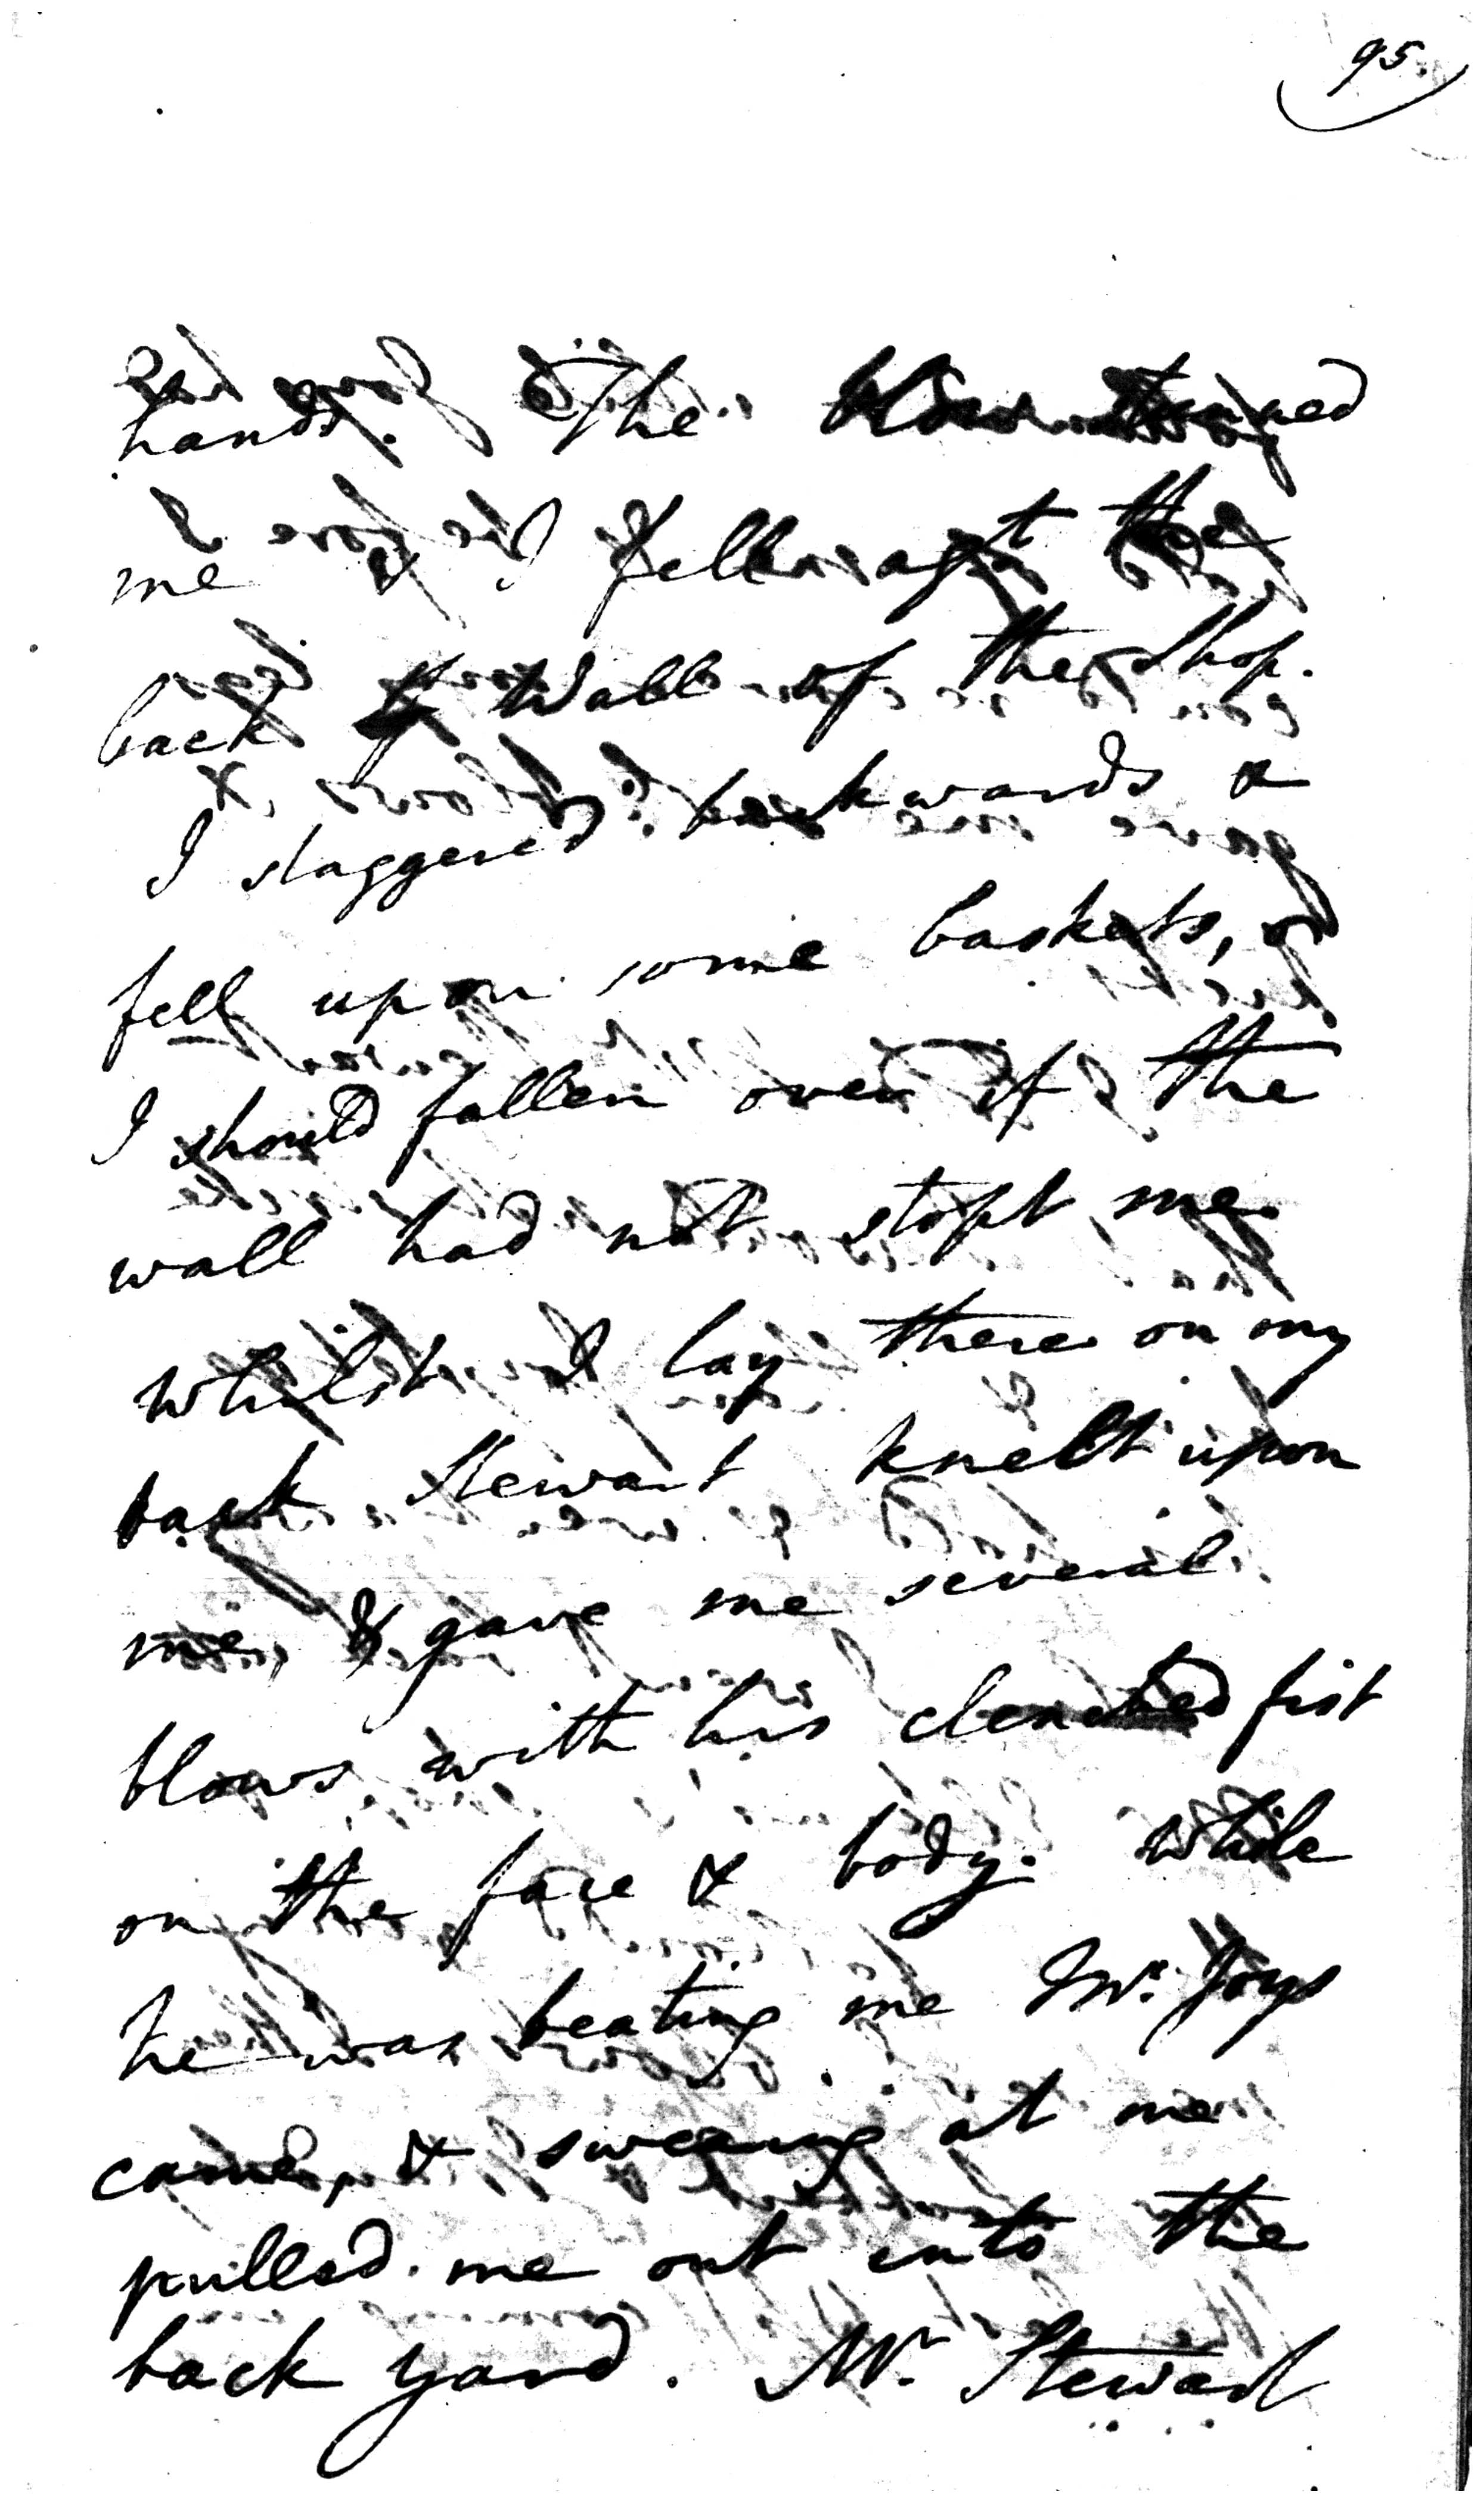 95.
hands. The blow
me & I fell agt the
back Wall of the Shop.
I staggered backwards &
fell upon some baskets, &
I should fallen over if the
wall had not stopt me
whilst I lay there on my
back Stewart knelt upon
me, & gave me several
blows with his clenched fist
on the face & body. While
he was beating me Mr. Joys
came, & swearing at me
pulled me out into the
back yard. Mr. Stewart